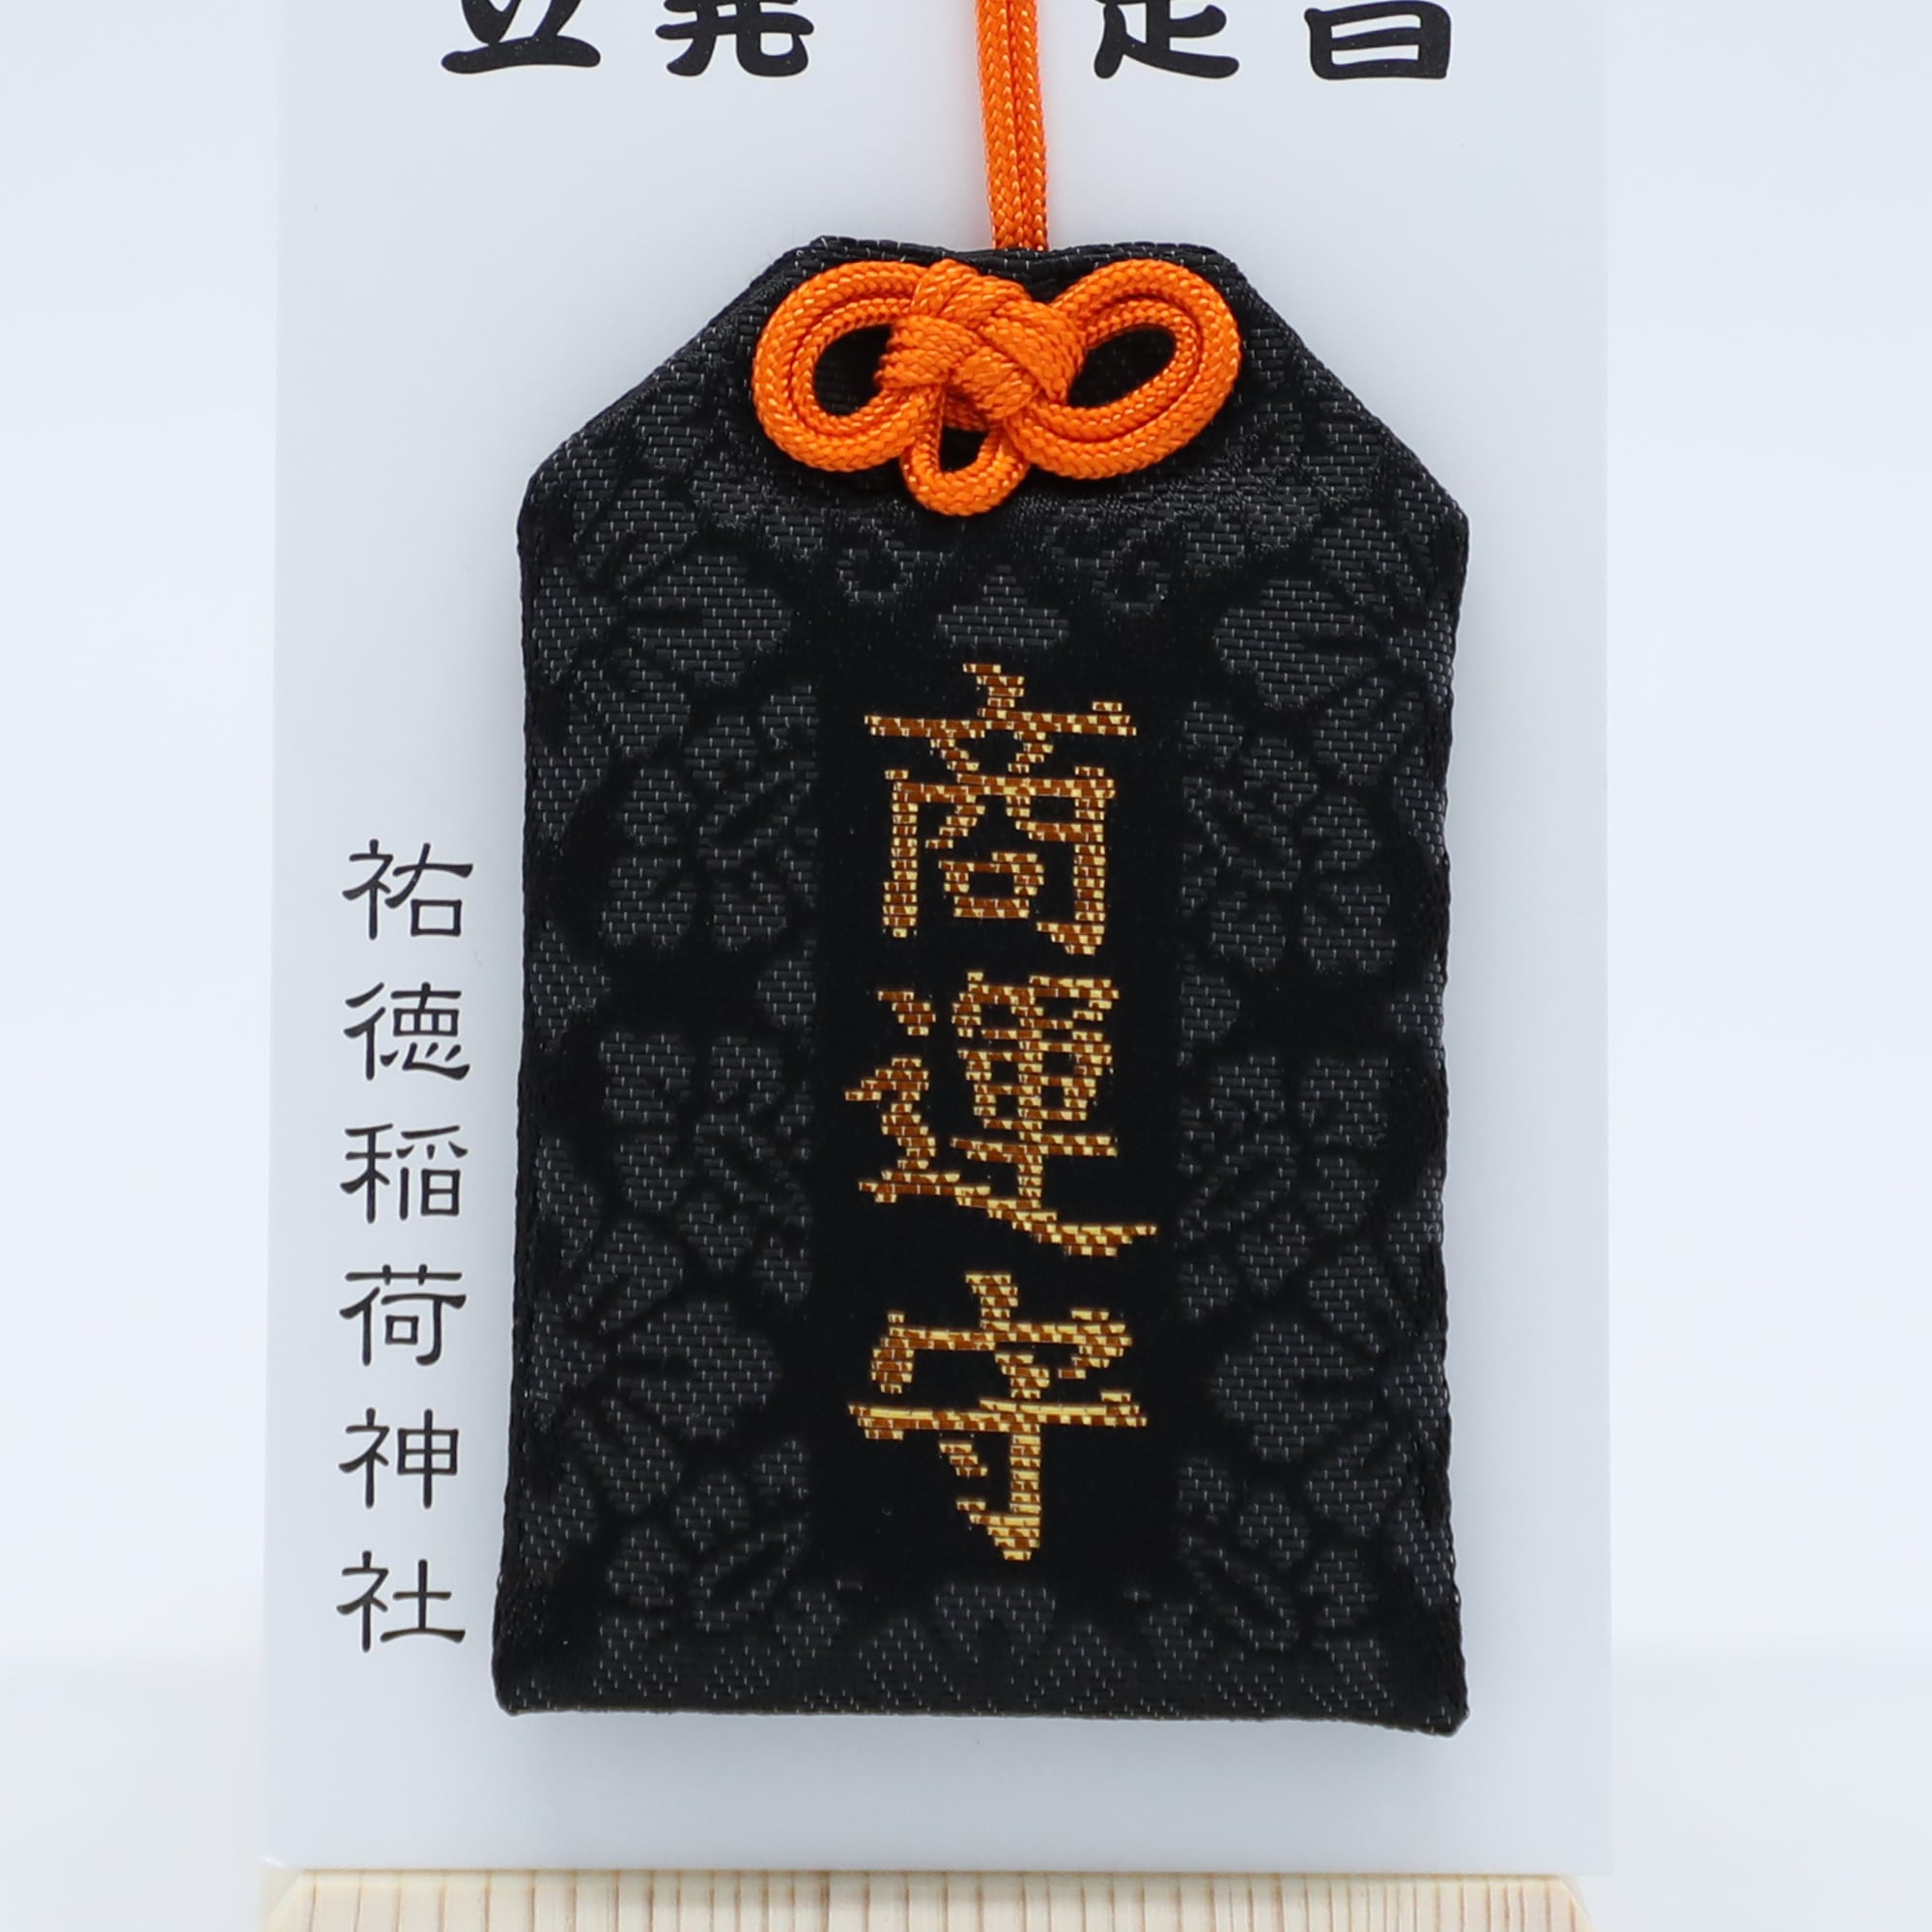 商運守
祐徳稲荷神社